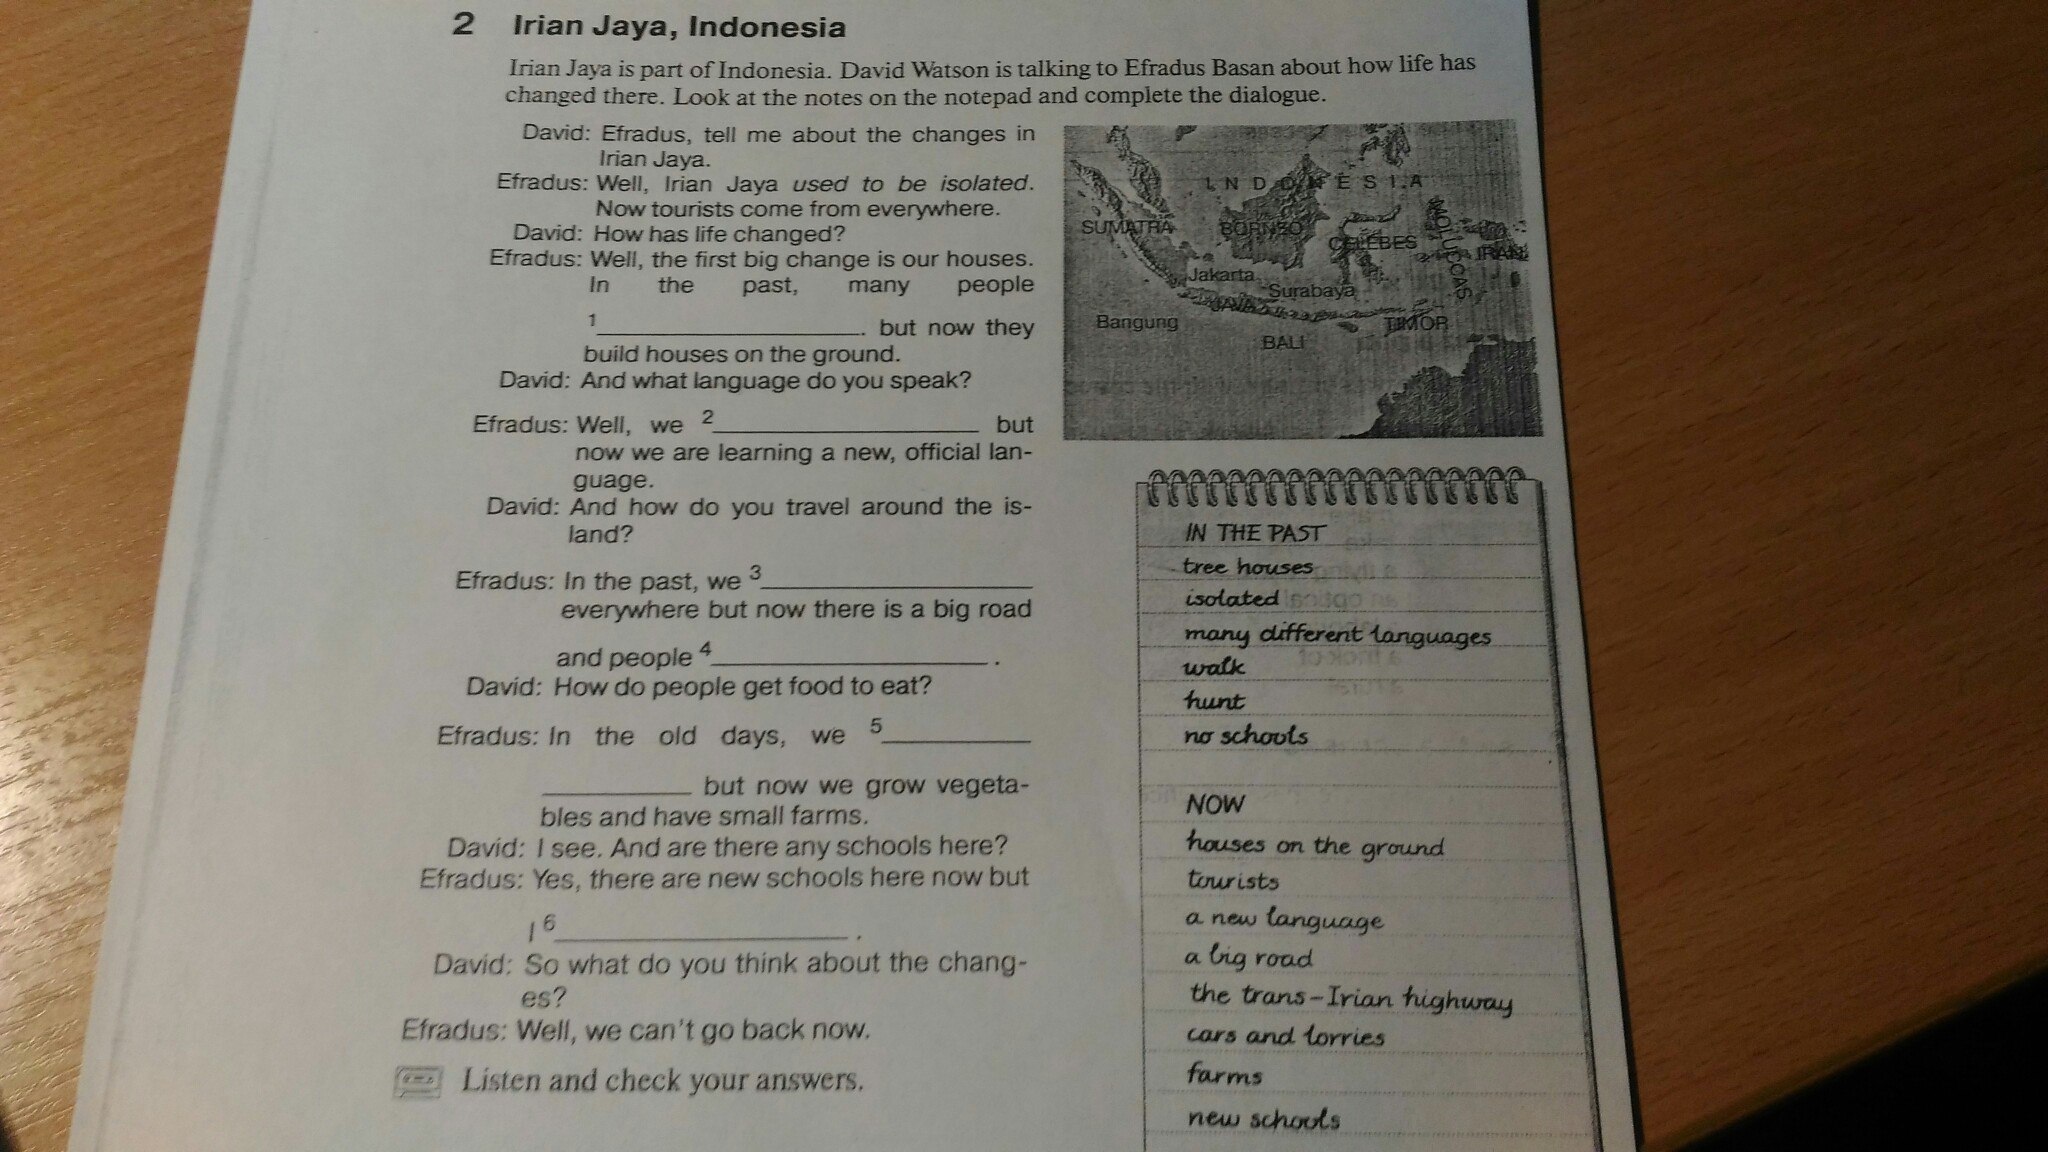 2 Irian Jaya, Indonesia
Irian Jaya is part of Indonesia. David Watson is talking to Efradus Basan about how life has
changed there. Look at the notes on the notepad and complete the dialogue.
David: Efradus, tell me about the changes in
Irian Jaya.
Efradus: Well, Irian Jaya used to be isolated.
Now tourists come from everywhere.
David: How has life changed?
Efradus: Well, the first big change is our houses.
In the past, many people
1______________________. but now they
build houses on the ground.
David: And what language do you speak?
Efradus: Well, we 2______________________ but
now we are learning a new, official lan-
guage.
David: And how do you travel around the is-
land?
Efradus: In the past, we 3______________________
everywhere but now there is a big road
and people 4______________________.
David: How do people get food to eat?
Efradus: In the old days, we 5____________
____________ but now we grow vegeta-
bles and have small farms.
David: I see. And are there any schools here?
Efradus: Yes, there are new schools here now but
I 6______________________.
David: So what do you think about the chang-
es?
Efradus: Well, we can't go back now.
Listen and check your answers.
INDONESIA
SUMATRA
BORNEO
CELEBES
MOLUCCAS
IRAN
Jakarta
Surabaya
JAVA
Bangung
TIMOR
BALI
IN THE PAST
tree houses
isolated
many different languages
walk
hunt
no schools
NOW
houses on the ground
tourists
a new language
a big road
the trans-Irian highway
cars and lorries
farms
new schools